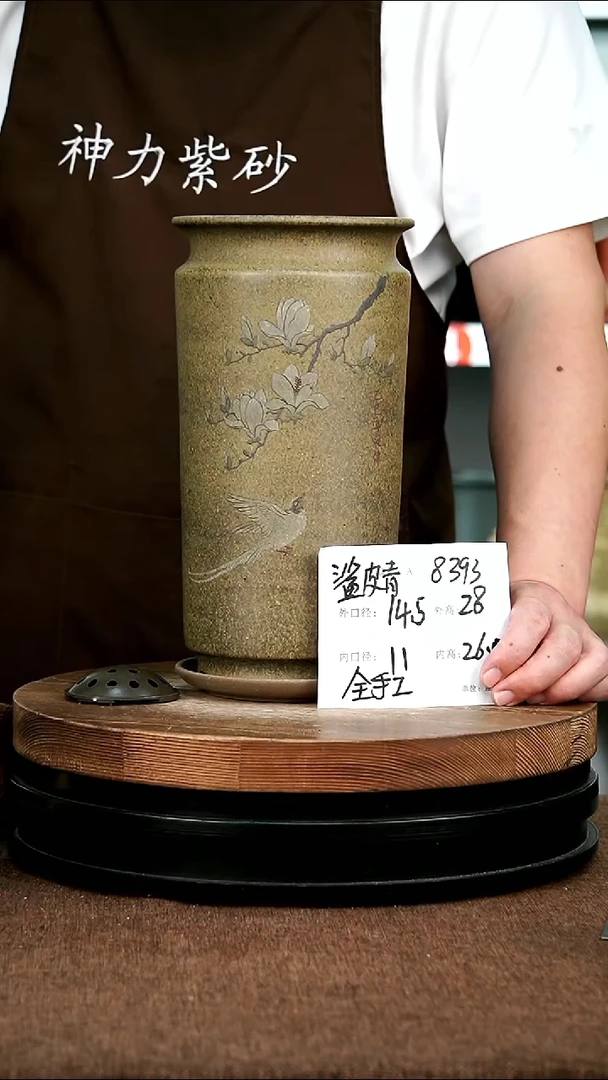 神力紫砂
鲨皮青 A 8393
外口径: 14.5 外高: 28
内口径: 11 内高:
全手工